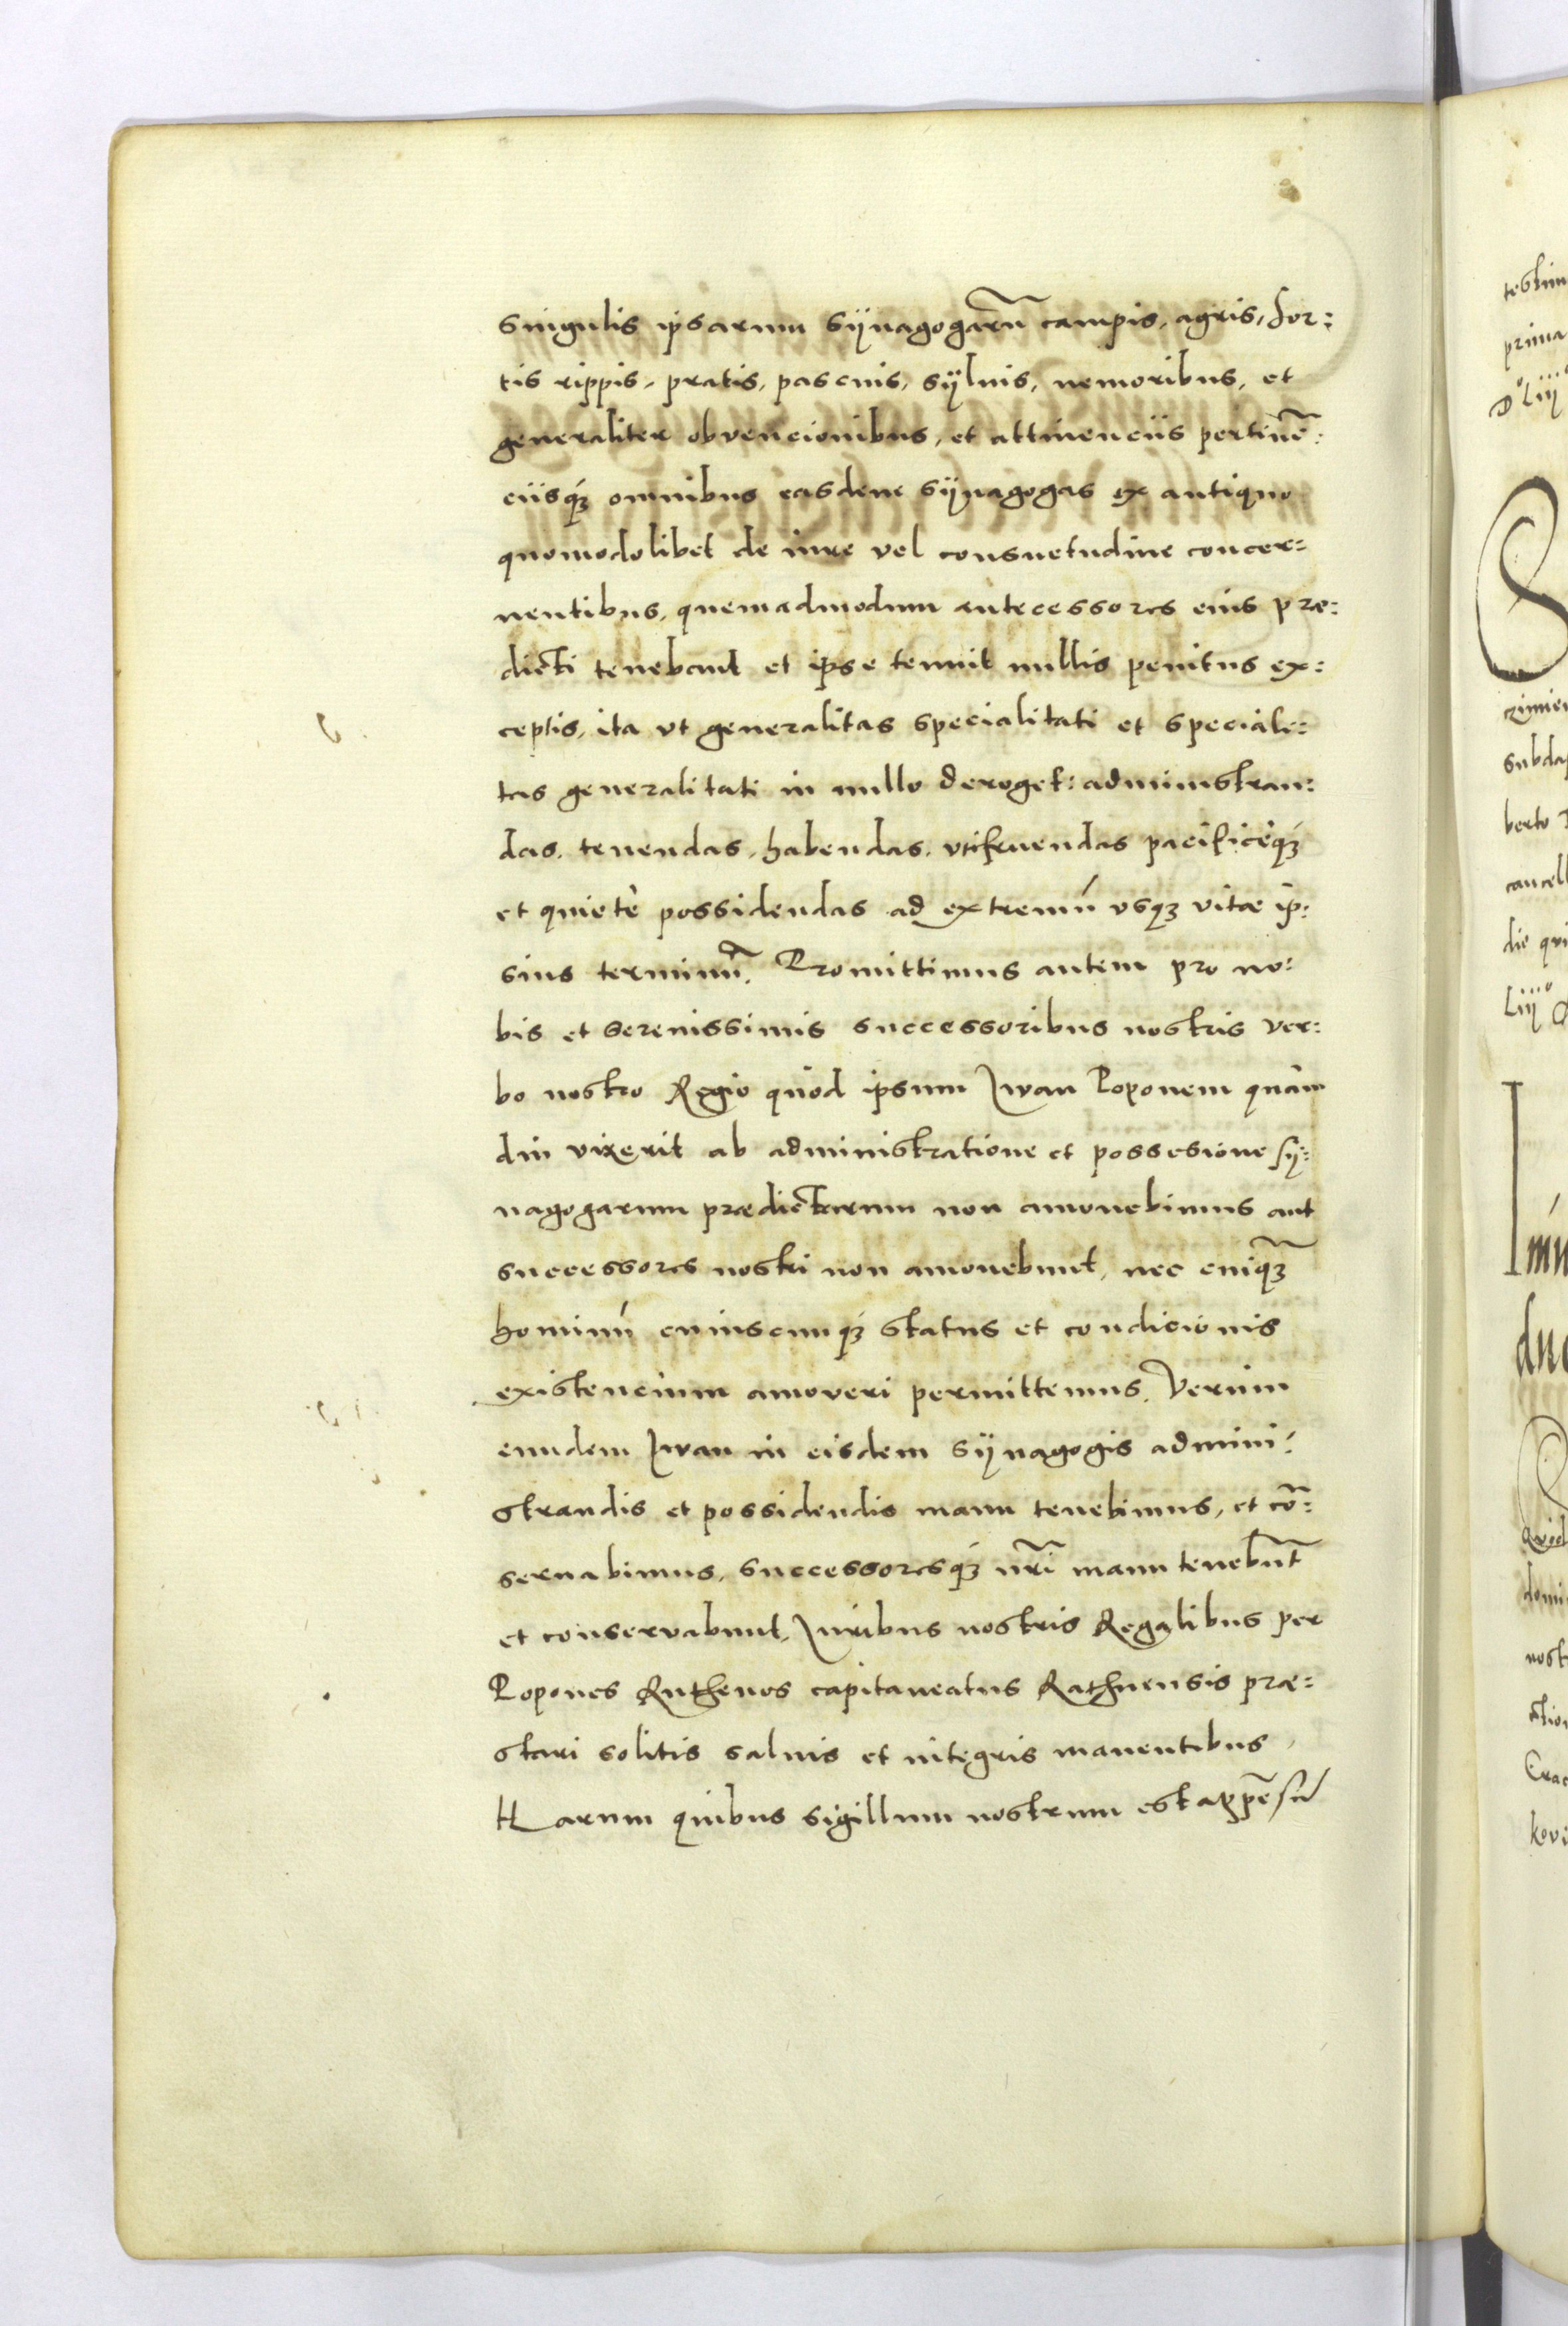 singulis ipsarum sÿnagogarũ campis, agris, for:
tis rippis, pratis, pascuis, sÿluis, nemoribus, et
generaliter obvencionibus, et attinenciis pertinẽ:
ciisq́ꝫ omnibus easdem sÿnagogas ex antiquo
quomodolibet de iure vel consuetudine concer:
nentibus, quemadmodum antecessores eius præ:
dicti tenebant et ipse tenuit nullis penitus ex:
ceptis, ita vt generalitas specialitati et speciali:
tas generalitati in nullo deroget: administran:
das, tenendas, habendas, vtifruendas pacificeq́ꝫ
et quietè possidendas ad extremũ vsqꝫ vitæ ip:
sius terminũ. Promittimus autem pro no:
bis et serenissimis successoribus nostris ver:
bo nostro Regio quòd ipsum Iwan Poponem quàm
diu vixerit ab administratione et possesione sÿ:
nagogarum prædictarum non amouebimus aut
successores nostri non amouebunt, nec cuiqꝫ̃
hominũ cuiuscunq́ꝫ status et condicionis
existencium amoveri permittemus. Verùm
eundem Iwan in eisdem sÿnagogis admini:
strandis et possidendis manu tenebimus, et cõ:
seruabimus, successoresq́ꝫ nr̃i manu tenebũt
et conservabunt, Iuribus nostris Regalibus per
Popones Ruthenos capitaneatus Rathnensis præ:
stari solitis saluis et integris manentibus,
Harum quibus sigillum nostrum est appẽsũ
prima
subda
berto
cancell
Liijº
domi
nost